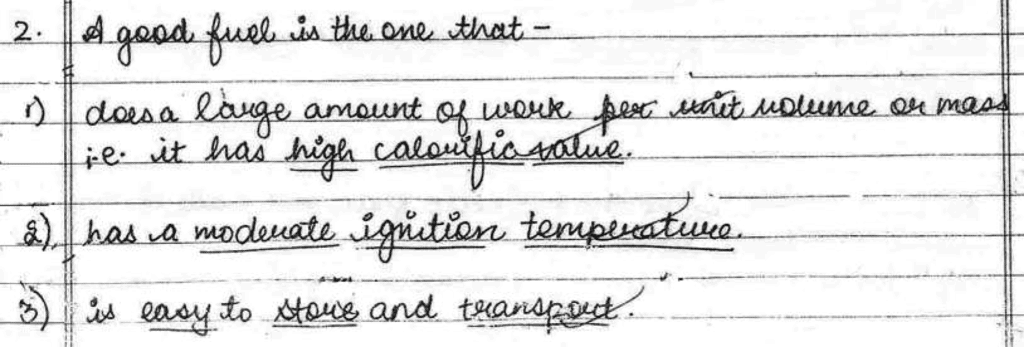 2. A good fuel is the one that –
1) does a large amount of work per unit volume or mass
i.e. it has high calorific value.
2) has a moderate ignition temperature.
3) is easy to store and transport.